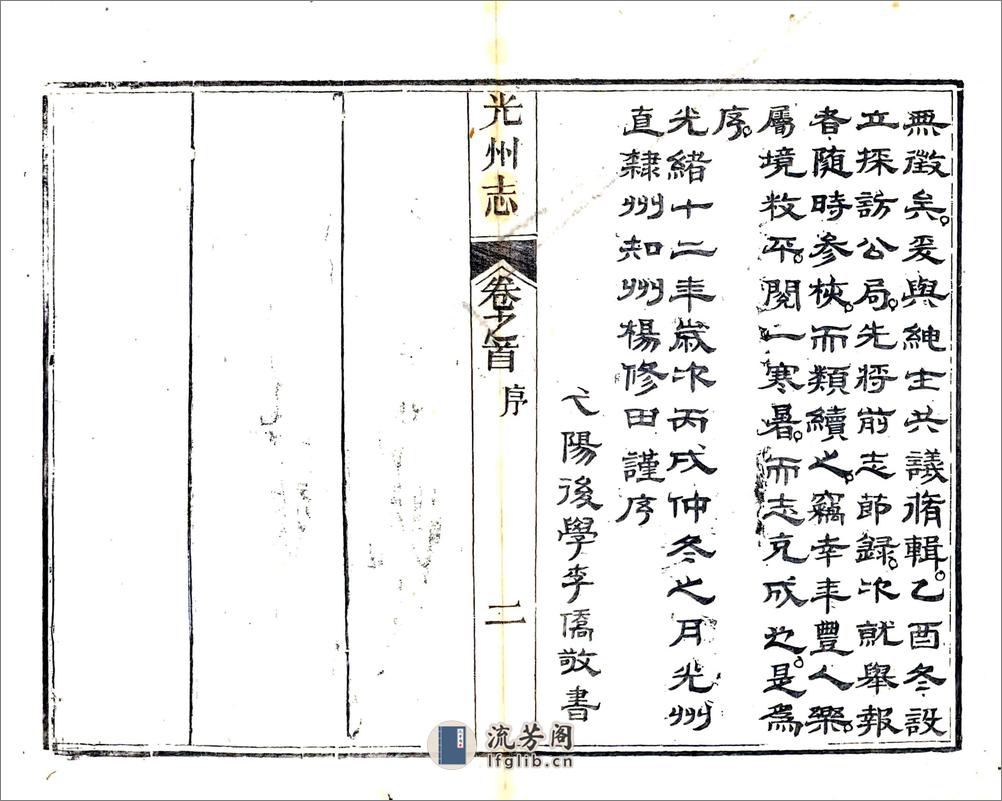 無徵矣爰與紳士共議脩輯乙酉冬設
立採訪公局先將前志節録次就舉報
者隨時參校而類續之竊幸年豐人樂
屬境敉平閱一寒暑而志克成之是為
序
光緒十二年歲次丙戌仲冬之月光州
直隸州知州楊修田謹序
弋陽後學李僑敬書
光州志
卷之首
序
二
流芳阁
lfglib.cn